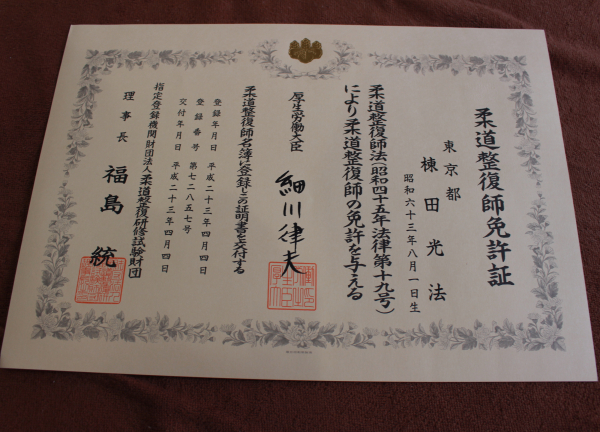 柔道整復師免許証
東京都
棟田光法
昭和六十三年八月一日生
柔道整復師法(昭和四十五年法律第十九号)
により柔道整復師の免許を与える
厚生労働大臣 細川律夫
柔道整復師名簿に登録しこの証明書を交付する
登録年月日 平成二十三年四月四日
登録番号 第七二八五七号
交付年月日 平成二十三年四月四日
指定登録機関財団法人柔道整復研修試験財団
理事長 福島統